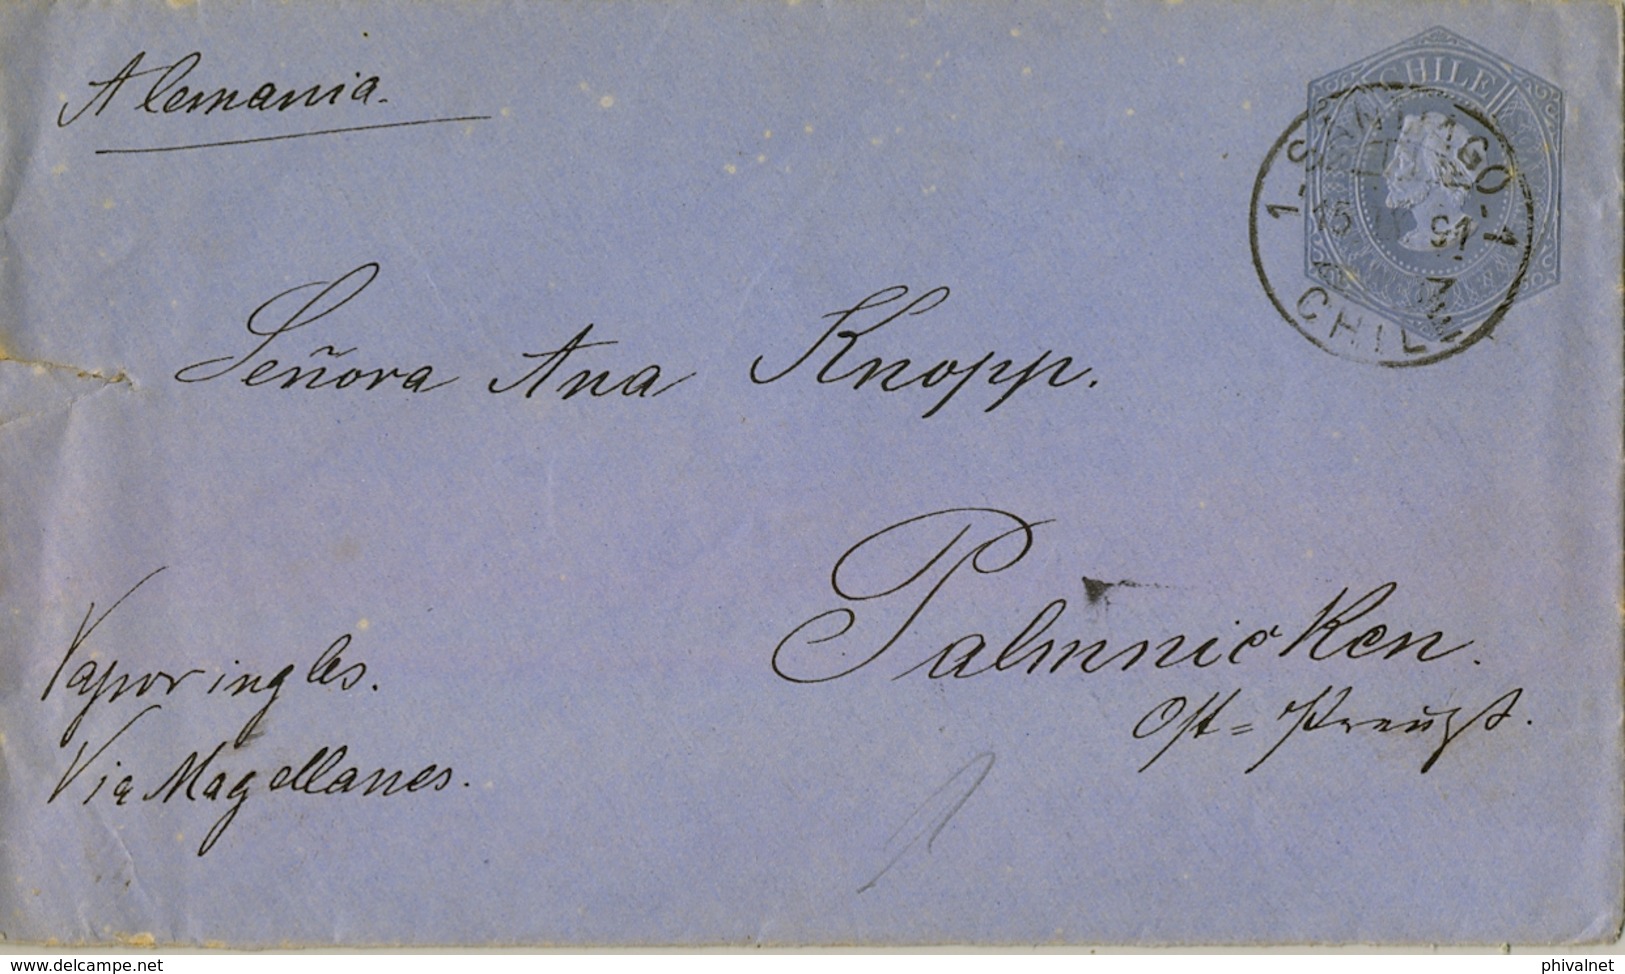 Alemania.
CHILE
1-SANTIAGO-1
15 91
CHILE
Señora Ana Knopp.
Palmnicken.
Ost=Preußt.
Vapor ingles.
Via Magellanes.
1
www.delcampe.net
phivalnet